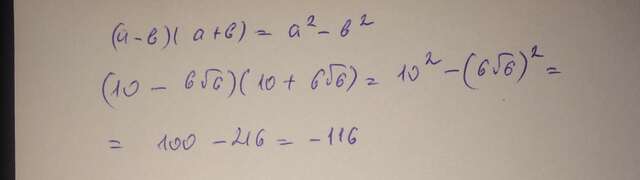 (a-b)(a+b) = a² - b²
(10 - 6√6)(10 + 6√6) = 10² - (6√6)² =
= 100 - 216 = -116